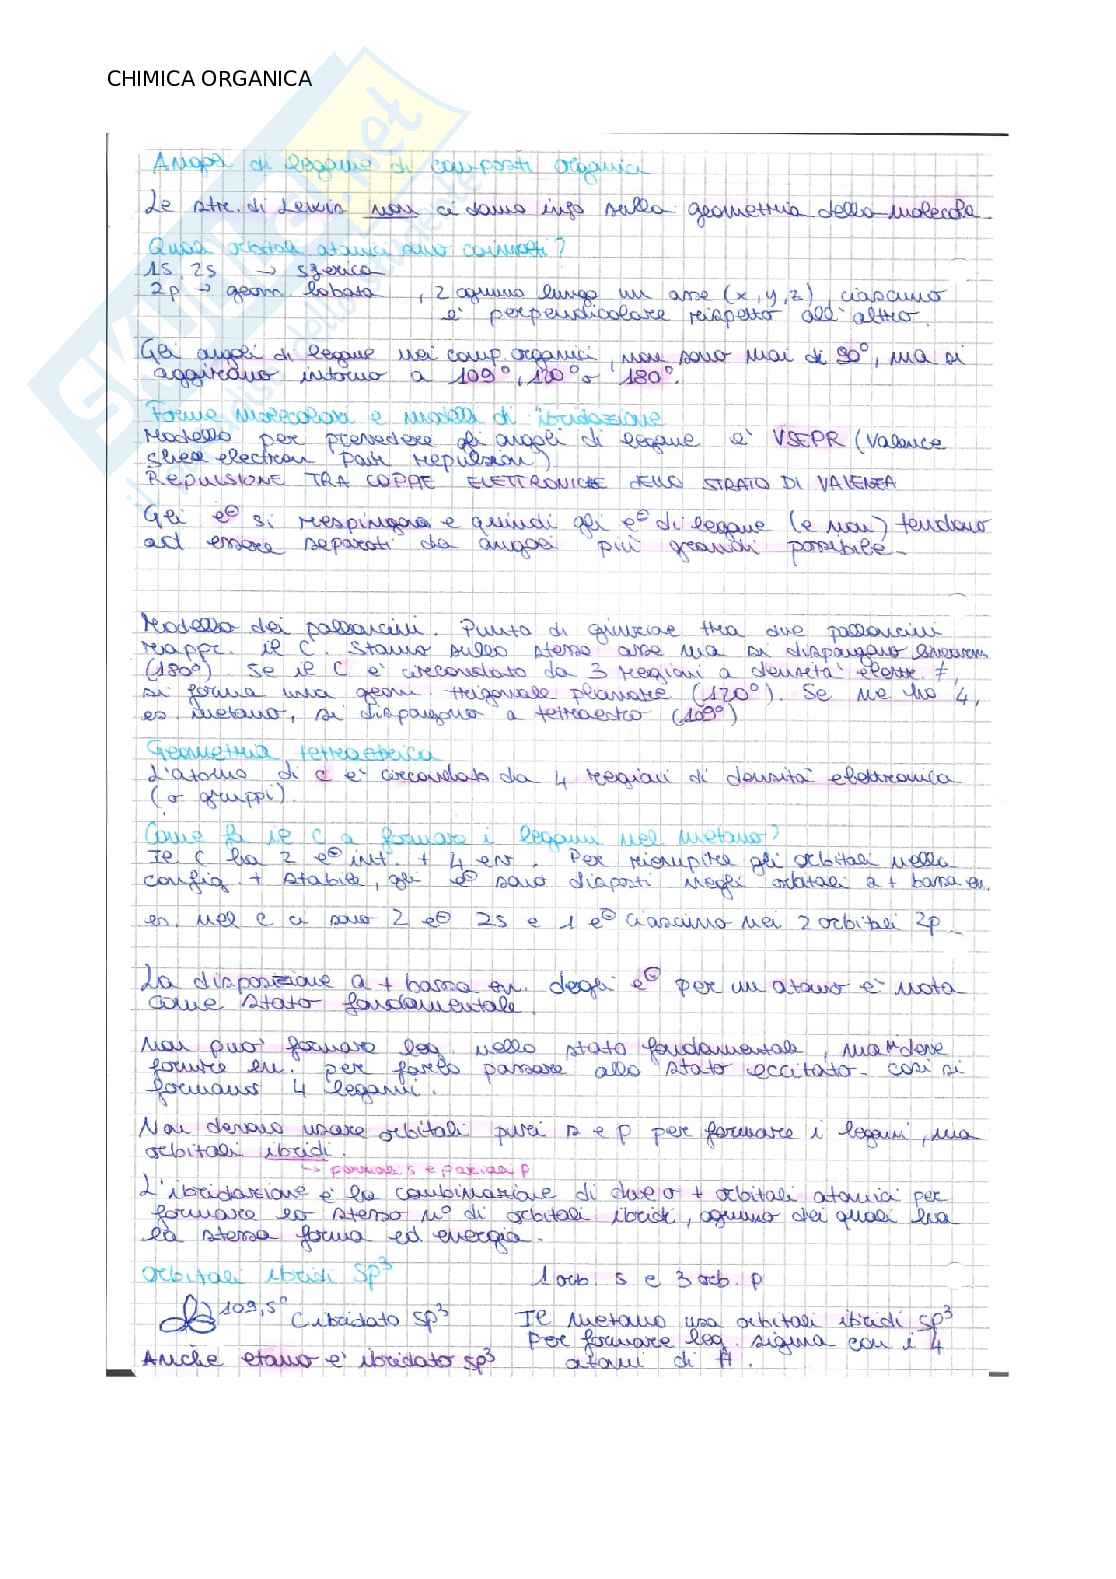 CHIMICA ORGANICA
Angoli di legame di composti organici
Le str. di Lewis non ci danno info sulla geometria della molecola
Quali orbitali atomici sono coinvolti?
1s, 2s → sferica
2p → geom. lobata, 2 ognuno lungo un asse (x, y, z), ciascuno
è perpendicolare rispetto all'altro.
Gli angoli di legame nei comp. organici, non sono mai di 90°, ma si
aggirano intorno a 109°, 120° o 180°.
Forme molecolari e modelli di ibridazione
Modello per prevedere gli angoli di legame è VSEPR (Valence
shell electron pair repulsion)
REPULSIONE TRA COPPIE ELETTRONICHE DELLO STRATO DI VALENZA
Gli e⊖ si respingono e quindi gli e⊖ di legame (e non) tendono
ad essere separati da angoli più grandi possibile.
Modello dei palloncini. Punto di giunzione tra due palloncini
rappr. il C. Stanno sullo stesso asse ma si dispongono
(180°) Se il C è circondato da 3 regioni a densità elettr. ≠,
si forma una geom. trigonale planare (120°). Se ne ho 4,
es. metano, si dispongono a tetraedro (109°)
Geometria tetraedrica
L'atomo di C è circondato da 4 regioni di densità elettronica
(o gruppi).
Come fa il C a formare i legami nel metano?
Il C ha 2 e⊖ int. + 4 est. Per riempire gli orbitali nella
config. + stabile, gli e⊖ sono disposti negli orbitali a + bassa en.
es. nel C ci sono 2 e⊖ 2s e 1 e⊖ ciascuno nei 2 orbitali 2p.
La disposizione a + bassa en. degli e⊖ per un atomo è nota
come stato fondamentale.
Non può formare leg. nello stato fondamentale, ma deve
fornire en. per farlo passare allo stato eccitato. Così si
formano 4 legami.
Non devono usare orbitali puri s e p per formare i legami, ma
orbitali ibridi.
→ parziali s e parziali p
L'ibridazione è la combinazione di due o + orbitali atomici per
formare lo stesso n° di orbitali ibridi, ognuno dei quali ha
la stessa forma ed energia.
Orbitali ibridi sp³ 1 orb. s e 3 orb. p
109,5° C ibridato sp³ Il metano usa orbitali ibridi sp³
per formare leg. sigma con i 4
Anche etano è ibridato sp³ atomi di H.